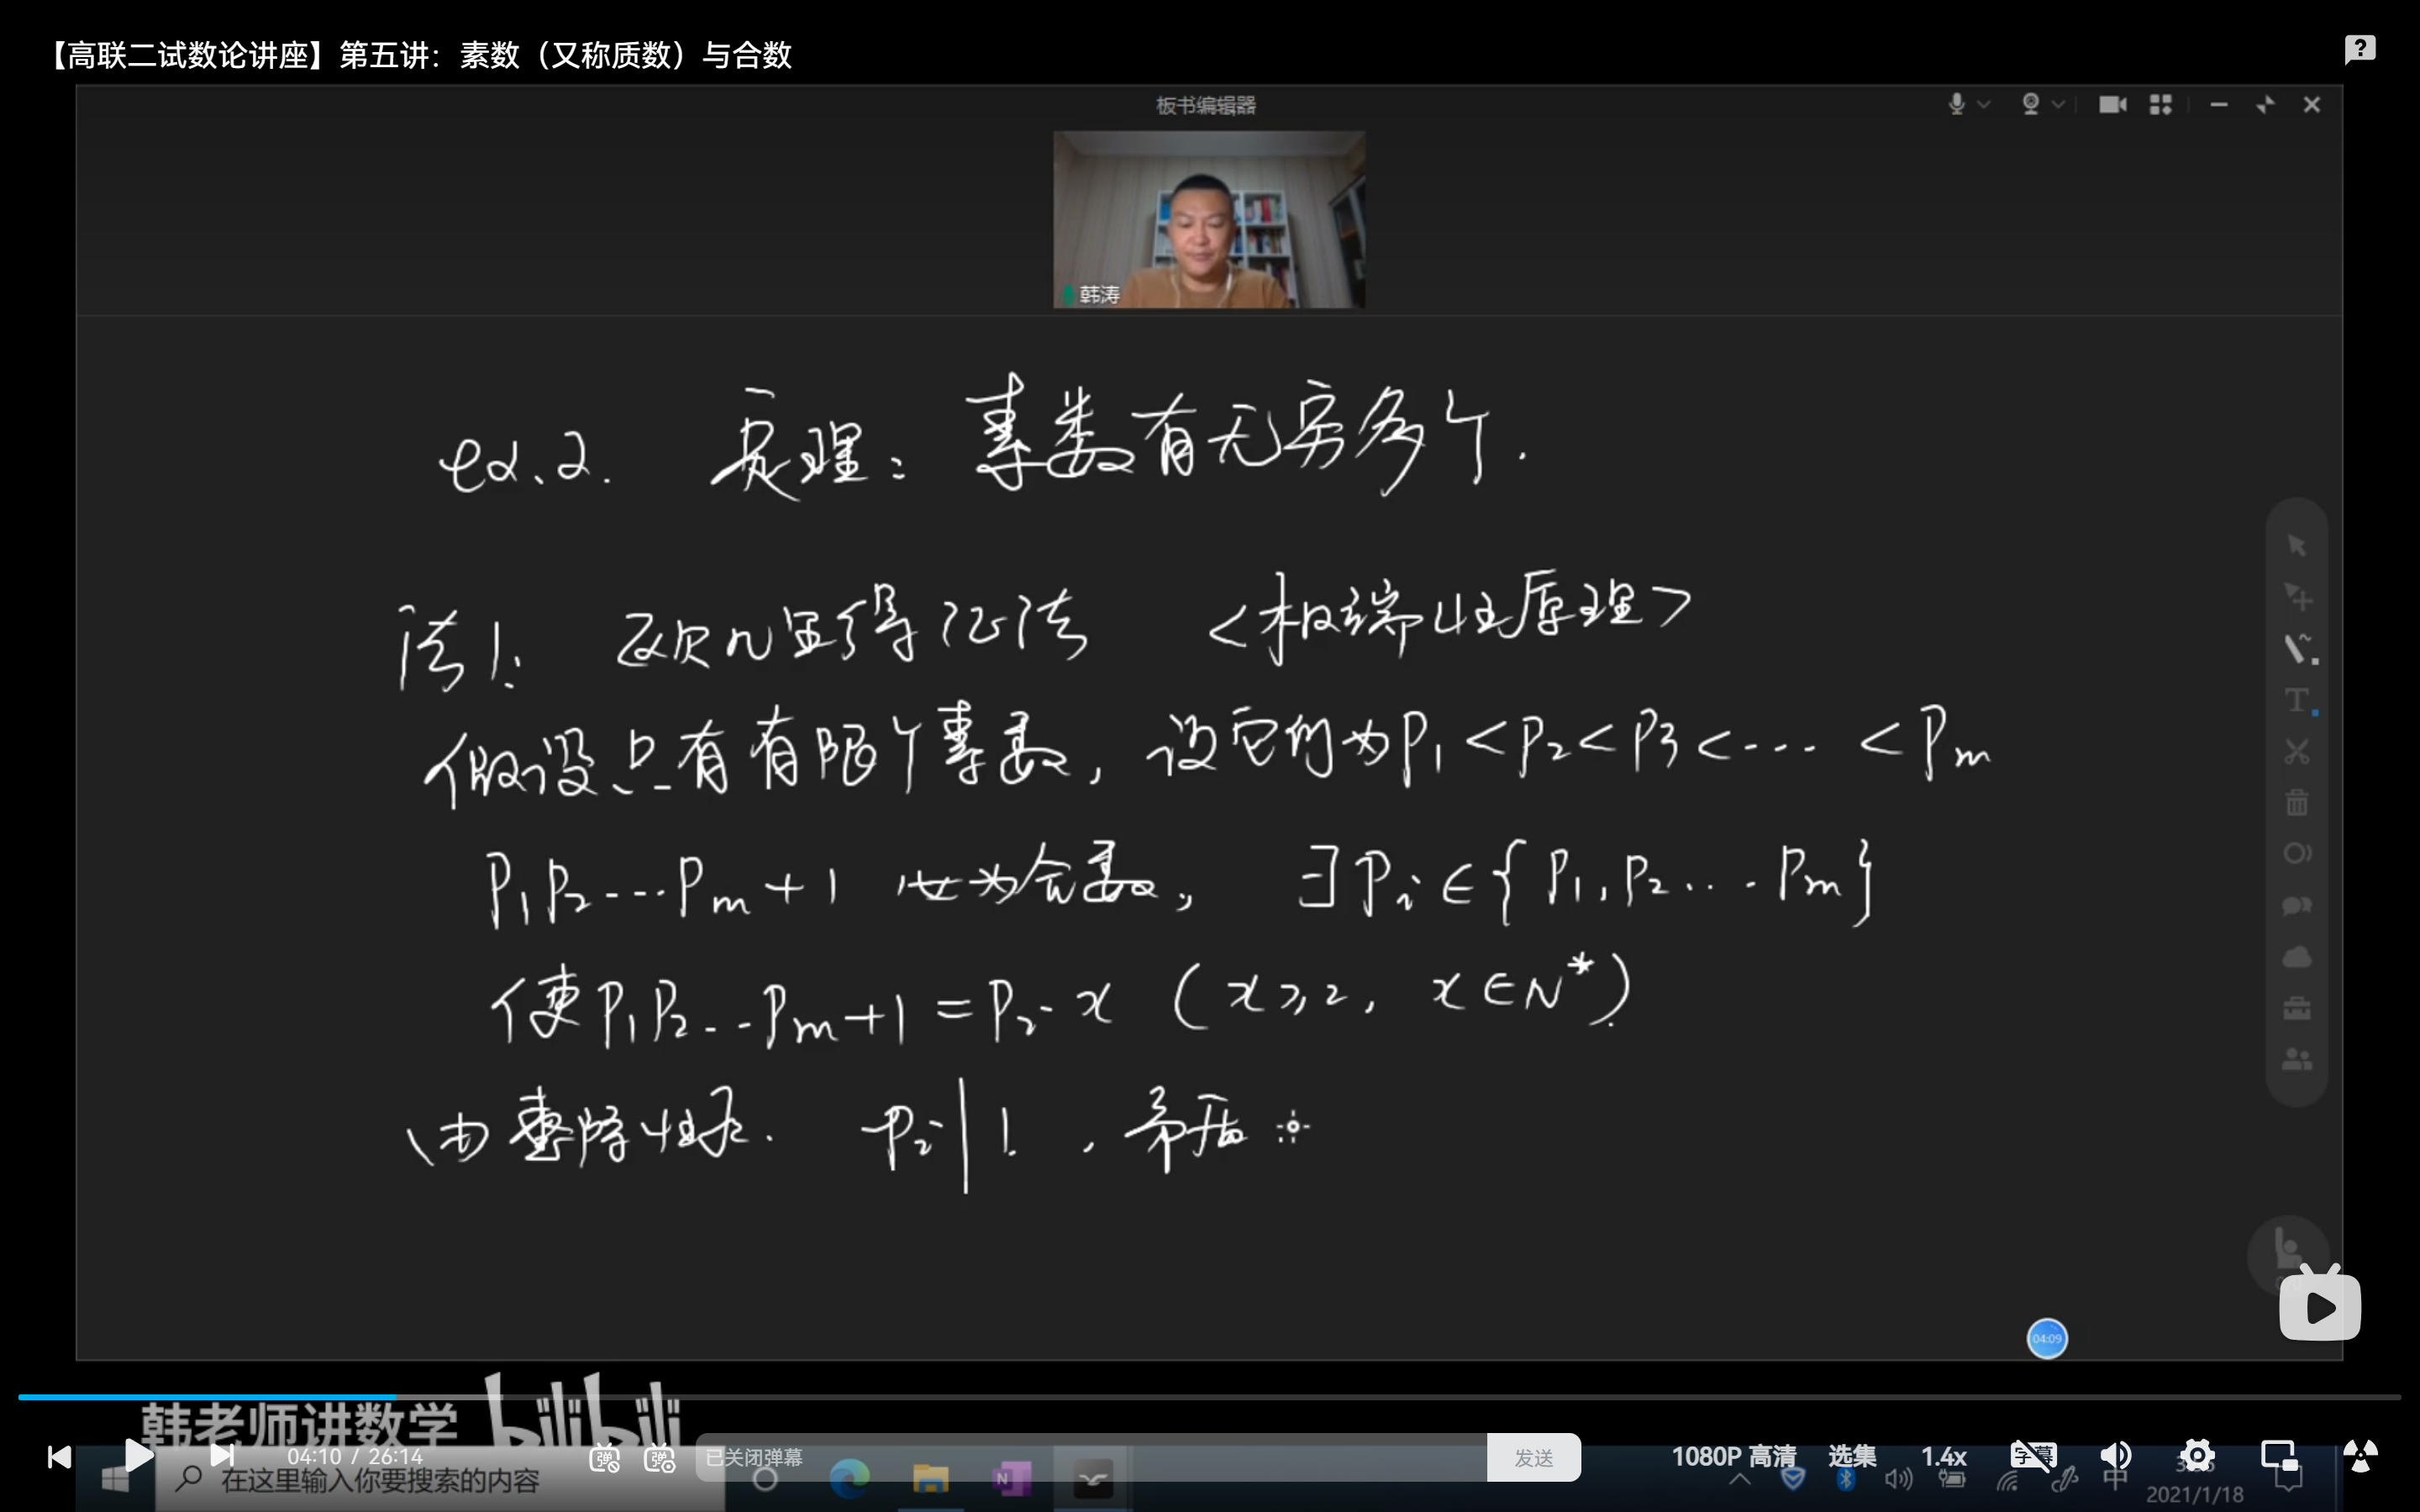 【高联二试数论讲座】第五讲：素数（又称质数）与合数
板书编辑器
韩涛
ex.2. 定理：素数有无穷多个.
法1: 欧几里得证法 <极端性原理>
假设只有有限个素数, 设它们为P₁<P₂<P₃<---<Pₘ
P₁P₂---Pₘ+1 必为合数, ∃Pᵢ∈{P₁,P₂...Pₘ}
使P₁P₂---Pₘ+1=Pᵢ·x (x≥2, x∈N*)
由整除性质. Pᵢ|1. , 矛盾
04:09
韩老师讲数学 bilibili
04:10 / 26:14
已关闭弹幕
发送
1080P 高清 选集 1.4x
在这里输入你要搜索的内容
中
2021/1/18